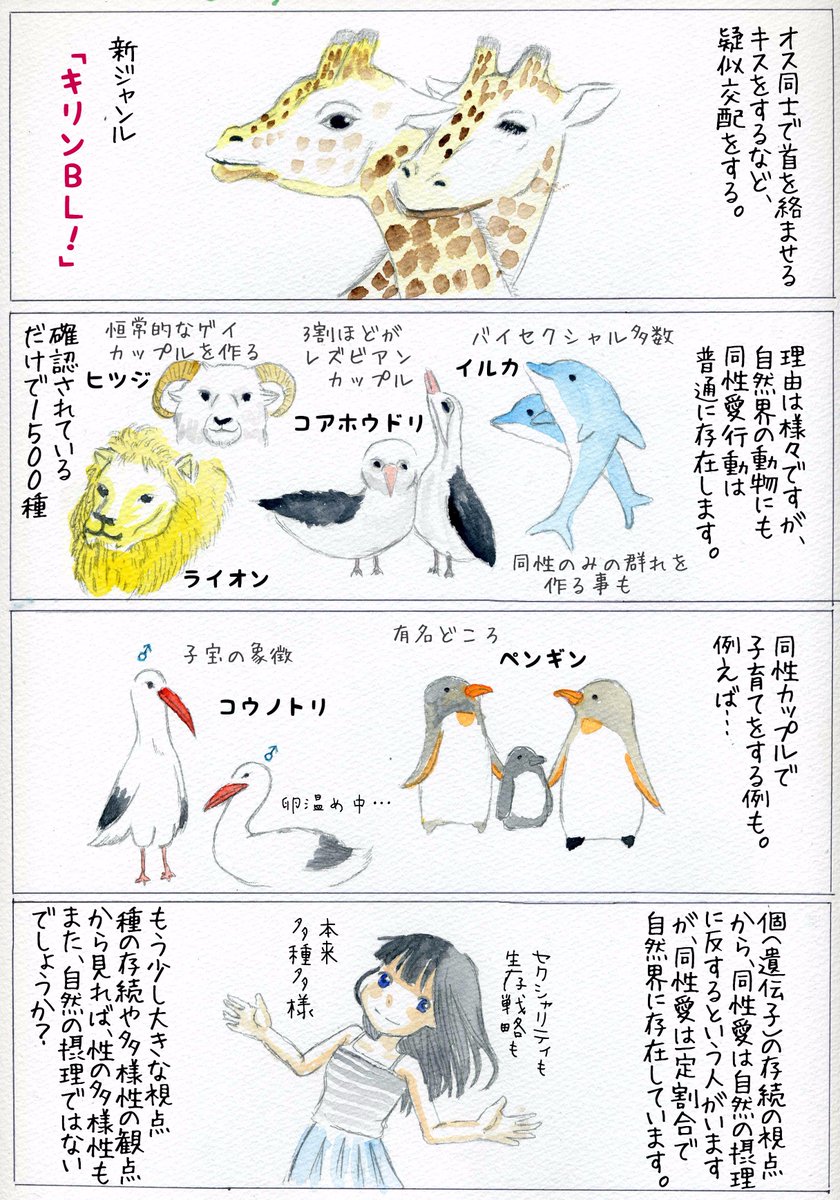 オス同士で首を絡ませる
キスをするなど、
疑似交配をする。
新ジャンル
「キリンBL!」
理由は様々ですが、
自然界の動物にも
同性愛行動は
普通に存在します。
バイセクシャル多数
イルカ
同性のみの群れを
作る事も
3割ほどが
レズビアン
カップル
コアホウドリ
恒常的なゲイ
カップルを作る
ヒツジ
ライオン
確認されている
だけで1500種
同性カップルで
子育てをする例も。
例えば…
有名どころ
ペンギン
子宝の象徴
コウノトリ
♂
♂
卵温め中…
個(遺伝子)の存続の視点
から、同性愛は自然の摂理
に反するという人がいます
が、同性愛は一定割合で
自然界に存在しています。
セクシャリティも
生存戦略も
本来
多種多様
もう少し大きな視点
種の存続や多様性の観点
から見れば、性の多様性も
また、自然の摂理ではない
でしょうか?